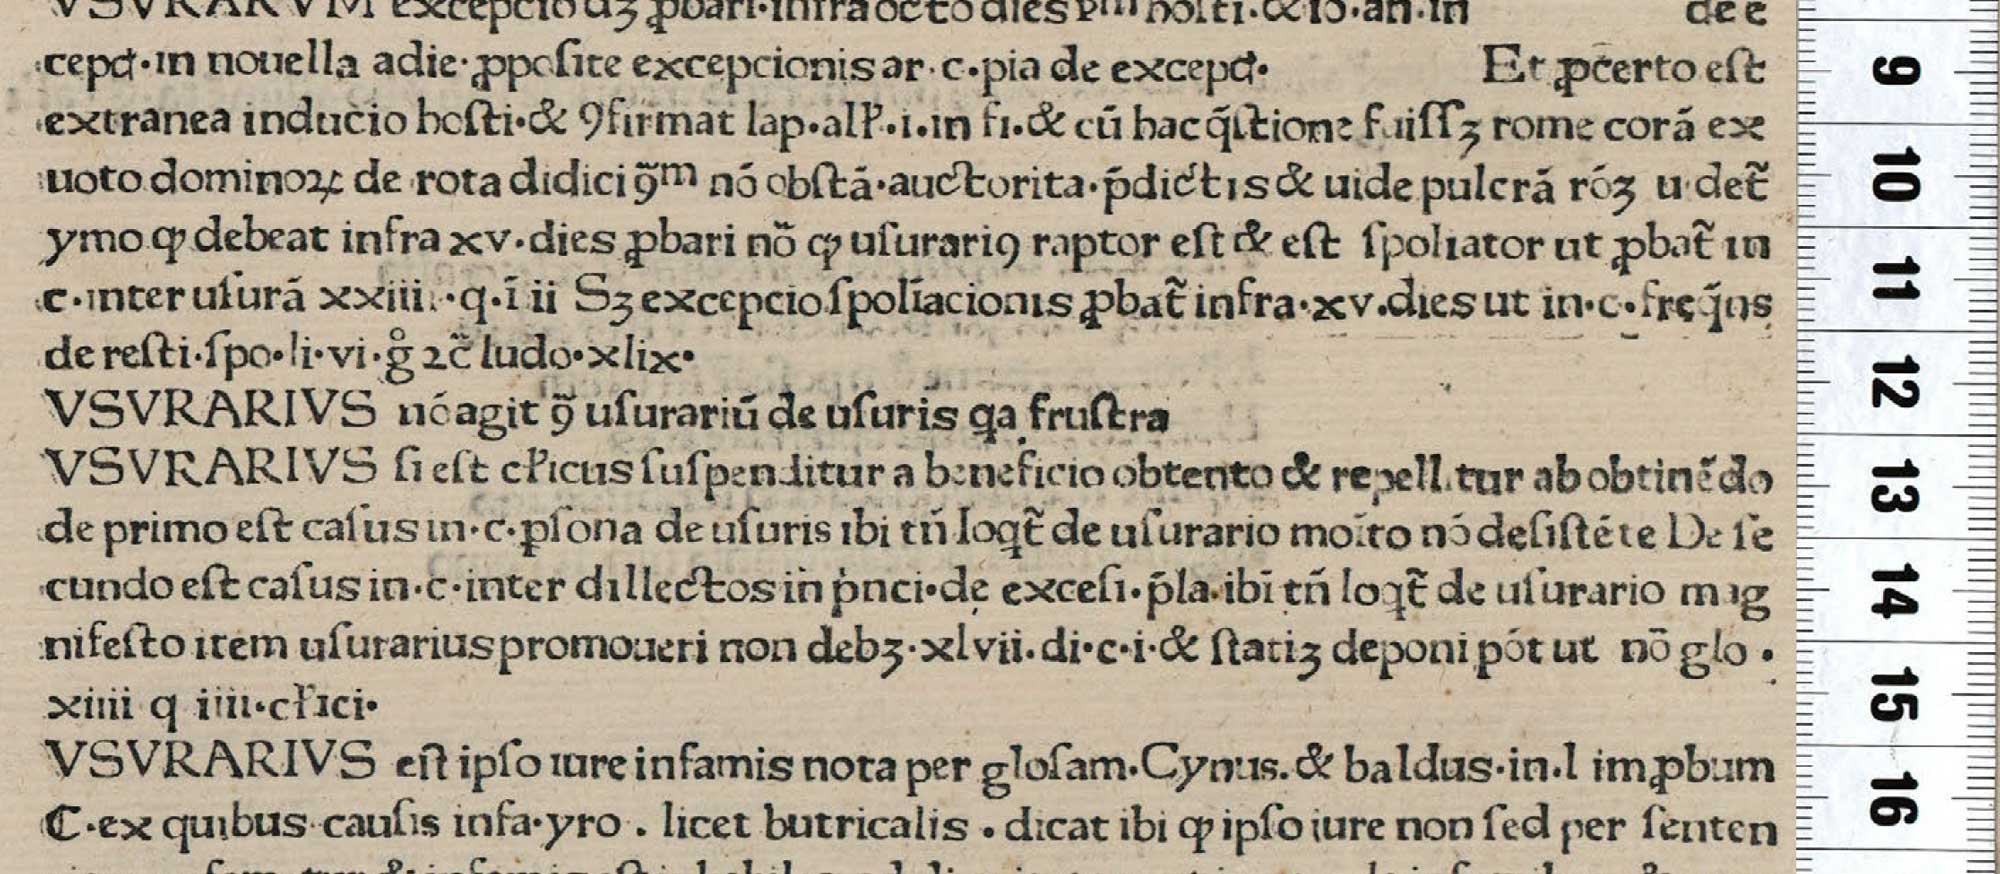 VSVRARVM excepcio dʒ ꝓbari·infra octo dies hosti·& io·an·in de e
cepct·in nouella adie·ꝓposite excepcionis ar·c·pia de excepct· Et ꝓcerto eſt
extranea inducio hoſti·& ꝯfirmat lap·alł·i·in fi·& cū hac q̄ſtione fuiſſʒ rome corā ex
uoto dominoꝝ de rota didici ꝯ̃m nō obſtā·auctorita·p̄dictis & uide pulcrā rōʒ u·det̃
ymo ꝙ debeat infra xv·dies ꝓbari nõ ꝙ uſurariꝯ raptor eſt & eſt ſpoliator ut ꝓbat̃ in
c·inter uſurā xxiii·q·ī ii Sʒ excepcio ſpoliacionis ꝓbat̃ infra·xv·dies ut in·c·freq̄ns
de reſti·ſpo·li·vi·g̊ ⁊c̃ ludo·xlix·
VSVRARIVS nō agit ꝯ̃ uſurariū de uſuris qa fruſtra
VSVRARIVS ſi eſt cłicus ſuſpenditur a beneficio obtento & repellitur ab obtinēdo
de primo eſt caſus in·c·pſona de uſuris ibi tn̄ loqt̃ de uſurario moīto nō deſiſtēte De ſe
cundo eſt caſus in·c·inter dillectos in pṅci·de exceſi·p̄la·ibi tn̄ loqt̃ de uſurario mag
nifeſto item uſurarius promoueri non debʒ·xlvii·di·c·i·& ſtatiʒ deponi pōt ut nō glo·
xiiii q iiii·cłici·
VSVRARIVS eſt ipſo iure infamis nota per gloſam·Cynus·& baldus·in·l imꝓbum
C·ex quibus cauſis infa·yro · licet butricalis · dicat ibi ꝙ ipſo iure non ſed per ſenten
9
10
11
12
13
14
15
16